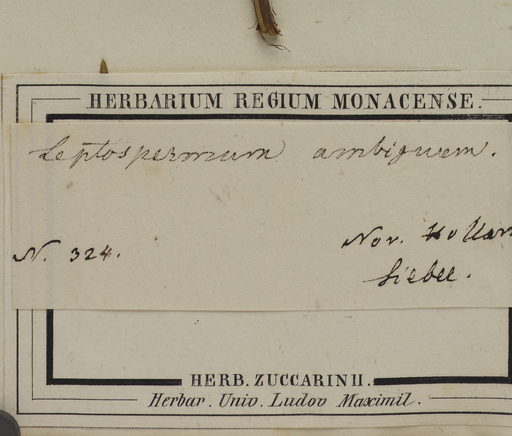 HERBARIUM REGIUM MONACENSE.
Leptospermum ambiguum.
N. 324.
Nov. Hollan
Sieber.
HERB. ZUCCARINII.
Herbar. Univ. Ludov Maximil.